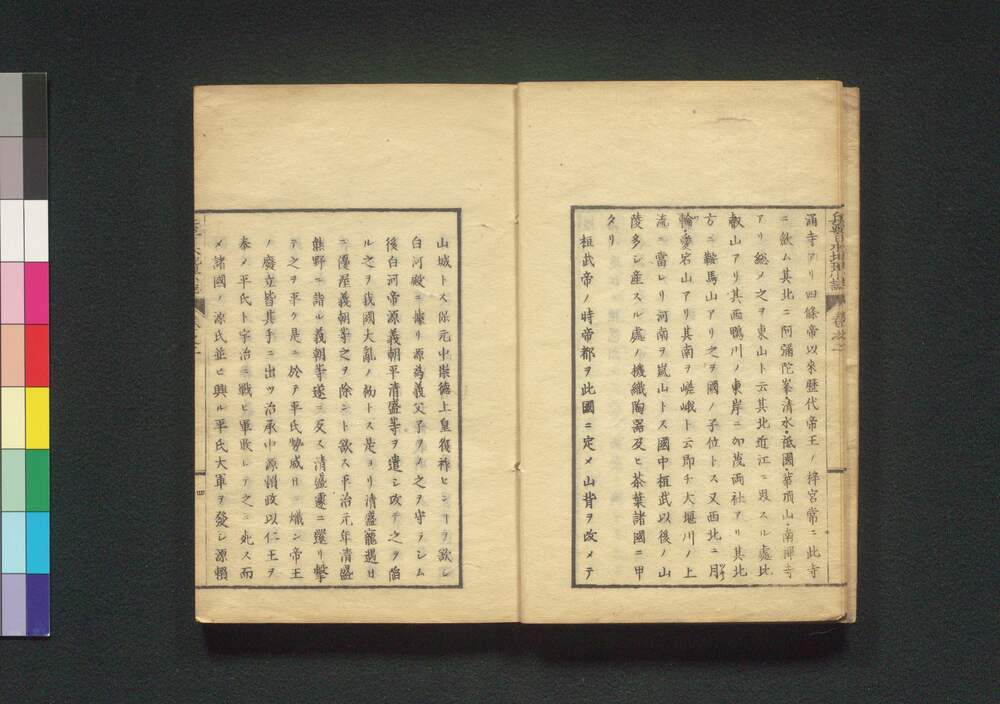 涌寺アリ四條帝以来歴代帝王ノ梓宮常ニ此寺
ニ歛ム其北ニ阿彌陀峯・清水・祗國・華頂山・南禪寺
アリ総メ之ヲ東山ト云其北近江ニ界スル處比
叡山アリ其西鴨川ノ東岸ニ加茂両社アリ其北
方ニ鞍馬山アリ之ヲ國ノ子位トス又西北ニ月
輪・愛宕山アリ其南ヲ嵯峨ト云即チ大堰川ノ上
流ニ當レリ河南ヲ嵐山トス國中桓武以後ノ山
陵多シ産スル處ノ機織陶器及ヒ茶葉諸國ニ甲
タリ
桓武帝ノ時帝都ヲ此國ニ定メ山背ヲ改メテ
山城トス保元中崇德上皇復祚ヒンヿヲ欲シ
白河殿ニ據リ源為義父子ヲメ之ヲ守ラシム
後白河帝源義朝平清盛等ヲ遣シ攻テ之ヲ陥
ル之ヲ我國大亂ノ初トス是ヨリ清盛寵遇日
ニ優屋義朝等之ヲ除ント欲ス平治元年清盛
熊野ニ詣ル義朝等遂ニ反ス清盛遽ニ還リ撃
テ之ヲ平ク是ニ於テ平氏勢威日ニ熾ン帝王
ノ廢立皆其手ニ出ツ治承中源頼政以仁王ヲ
奉メ平氏ト宇治ニ戰ヒ軍敗レテ之ニ死ス而
メ諸國ノ源氏並ヒ興ル平氏大軍ヲ發シ源頼
四